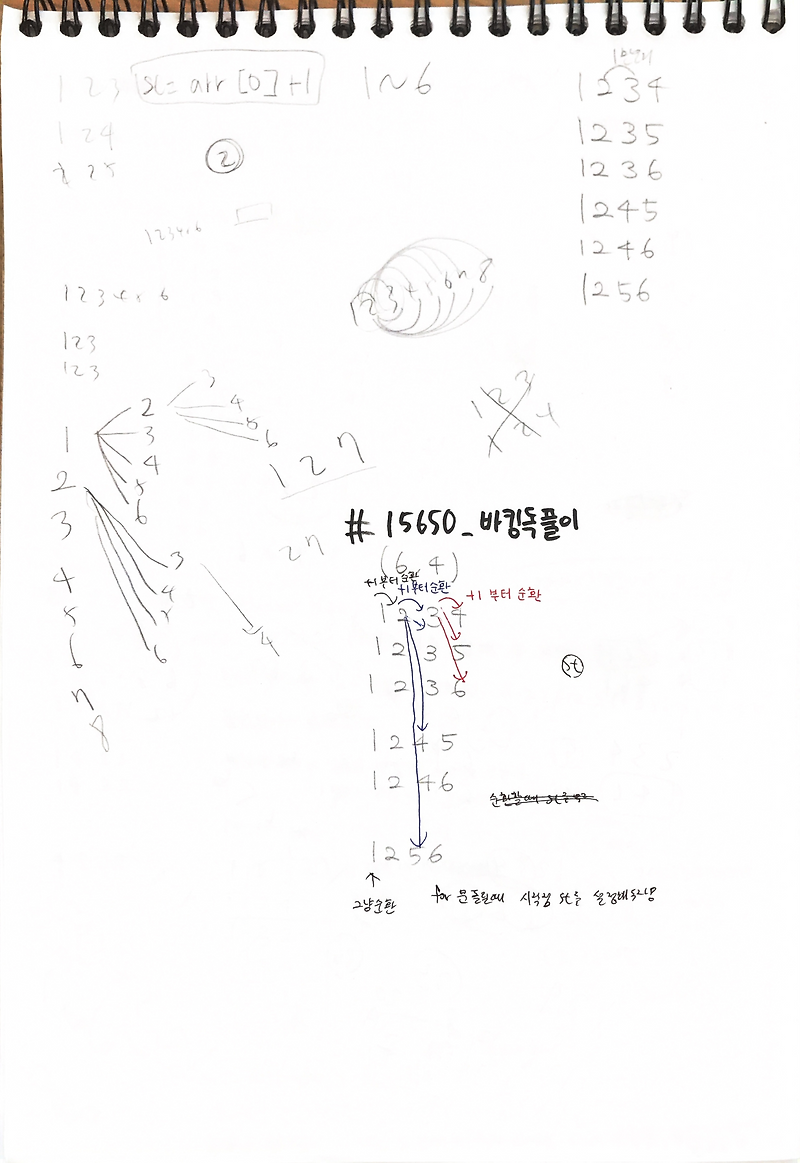 1 2 3 st = arr [0] + 1 1 ~ 6
1 2 4
1 2 5
2
1 2 3 4 5 6
1 2 3 4
1 2 3 5
1 2 3 6
1 2 4 5
1 2 4 6
1 2 5 6
1 2 3 4 5 6
1 2 3
1 2 3
1 2 3 4 5 6 7 8
1 2 3
1 2 4
1
2
3
4
5
6
7
8
2
3
4
5
6
3
4
5
6
3
4
5
6
4
1 2 7
2 7
# 15650_바킹독풀이
(6, 4)
+1부터 순환
+1부터순환
+1 부터 순환
1 2 3 4
1 2 3 5
1 2 3 6
st
1 2 4 5
1 2 4 6
1 2 5 6
그냥순환
for 문 돌릴때 시작점 st를